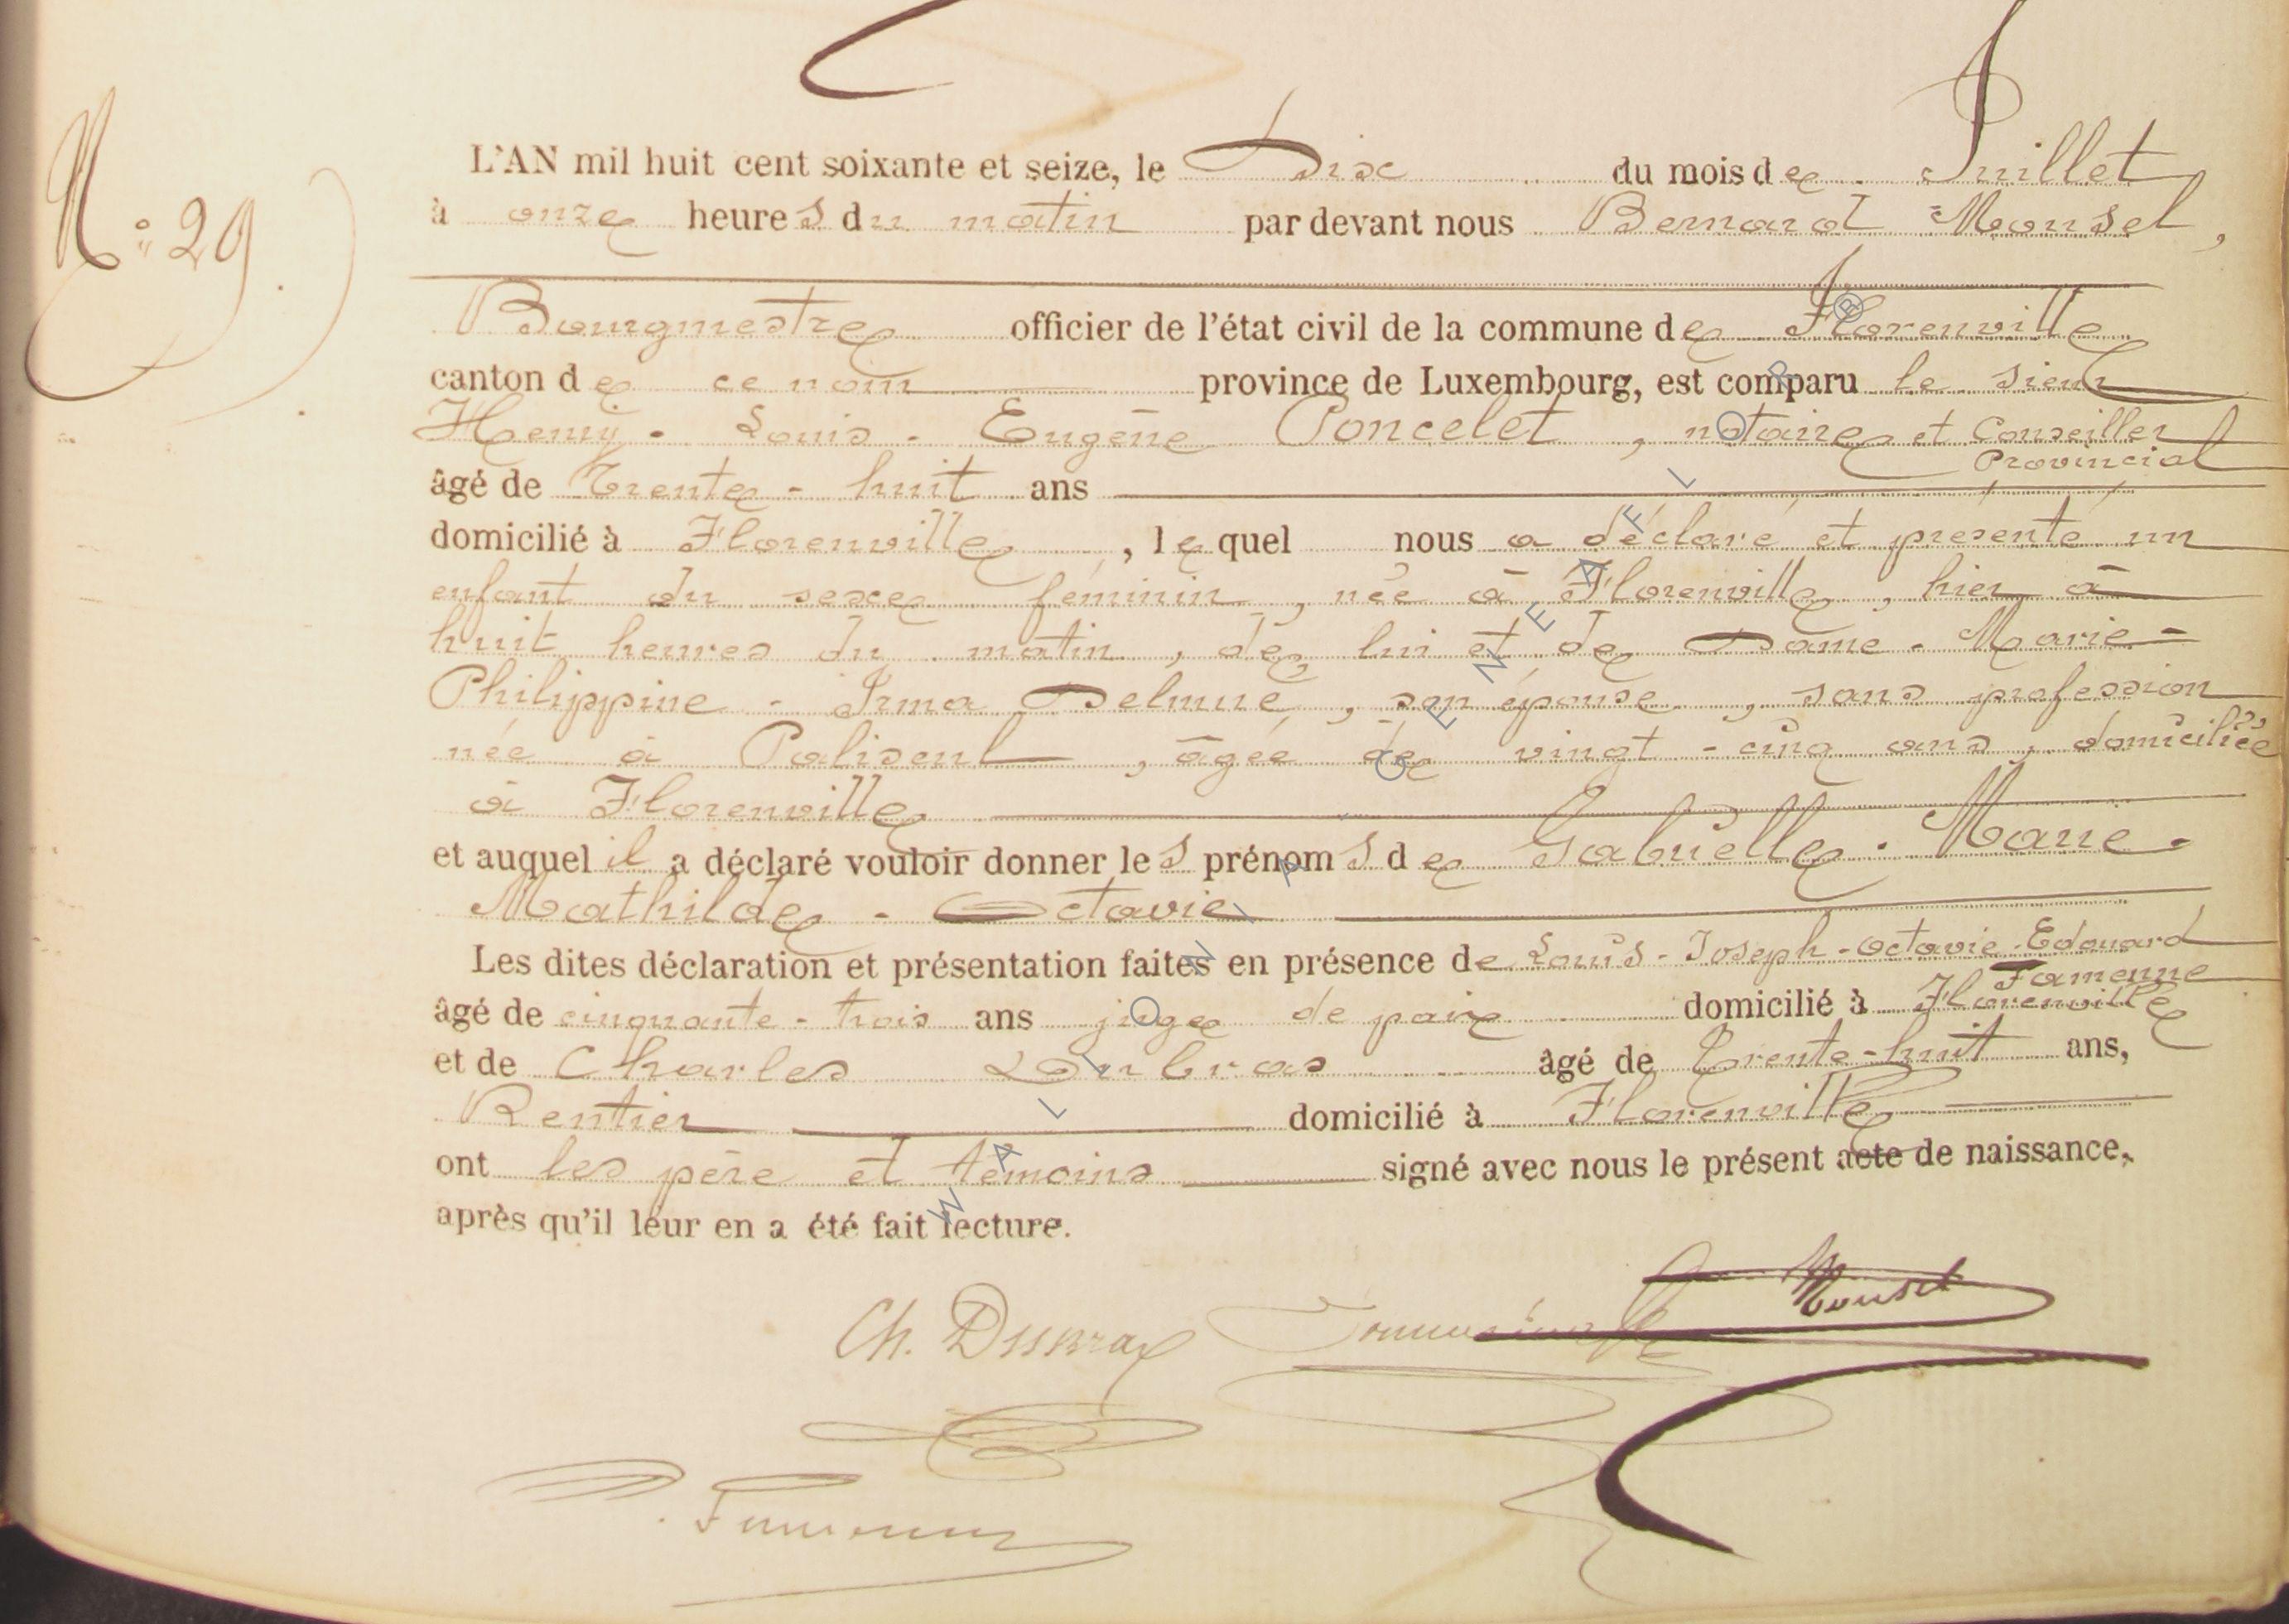 N.º 29.
L'AN mil huit cent soixante et seize, le Dix du mois de Juillet
à onze heures du matin par devant nous Bernard Mousel,
Bourgmestre officier de l'état civil de la commune de Florenville
canton de ce nom province de Luxembourg, est comparu le sieur
Henry-Louis-Eugène Poncelet, notaire et Conseiller
Provincial
âgé de Trente-huit ans
domicilié à Florenville, lequel nous a déclaré et présenté un
enfant du sexe féminin, née à Florenville, hier à
huit heures du matin, de lui et de Dame Marie-
Philippine-Irma Delmué, son épouse, sans profession
née à Paliseul, âgée de vingt-cinq ans, domiciliée
à Florenville
et auquel il a déclaré vouloir donner les prénoms de Gabrielle-Marie-
Mathilde-Octavie
Les dites déclaration et présentation faites en présence de Louis-Joseph-Octavie-Edouard
Famenne
âgé de cinquante-trois ans juge de paix domicilié à Florenville
et de Charles âgé de Trente-huit ans,
Rentier domicilié à Florenville
ont les père et témoins signé avec nous le présent acte de naissance,
après qu'il leur en a été fait lecture.
Mousel
Ch.